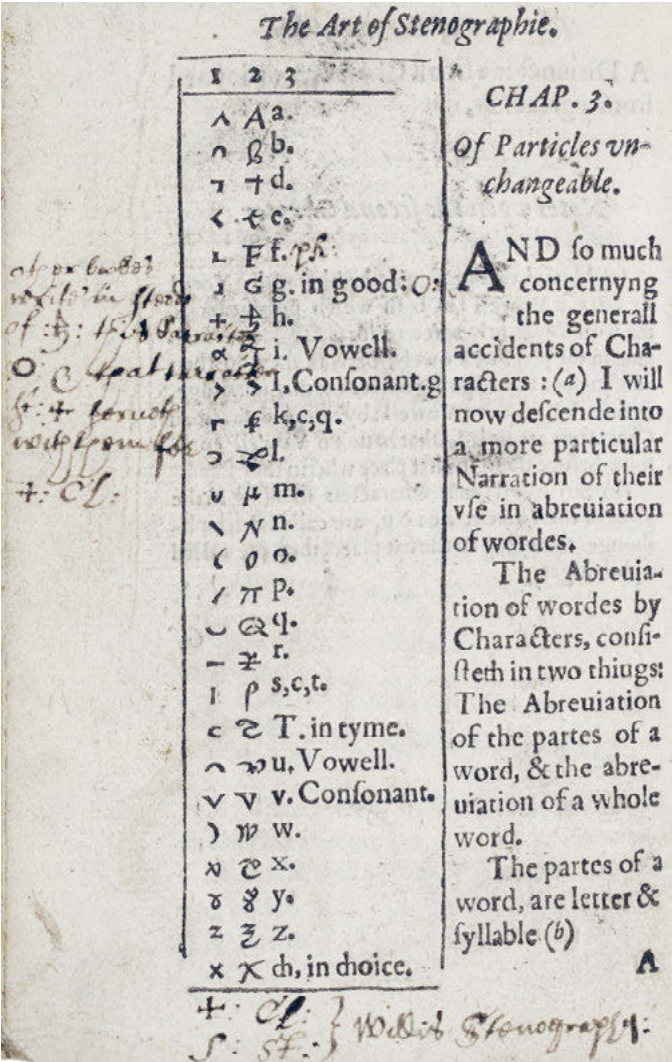 The Art of Stenographie.
1 2 3
a.
b.
d.
e.
f. ph:
g. in good: O:
h.
i. Vowell.
I, Conſonant. g
k, c, q.
l.
m.
n.
o.
p.
q.
r.
s, c, t.
T. in tyme.
u. Vowell.
v. Conſonant.
w.
x.
y.
z.
ch, in choice.
other bookes
write in steed
of
O
with them for
+: Cl:
+: Cl:
S: St: } Willis Stenography:
CHAP. 3.
Of Particles vn-
changeable.
AND ſo much
concernyng
the generall
accidents of Cha-
racters : (a) I will
now deſcende into
a more particular
Narration of their
vſe in abreuiation
of wordes.
The Abreuia-
tion of wordes by
Characters, conſi-
ſteth in two thiugs:
The Abreuiation
of the partes of a
word, & the abre-
uiation of a whole
word.
The partes of a
word, are letter &
ſyllable (b)
A